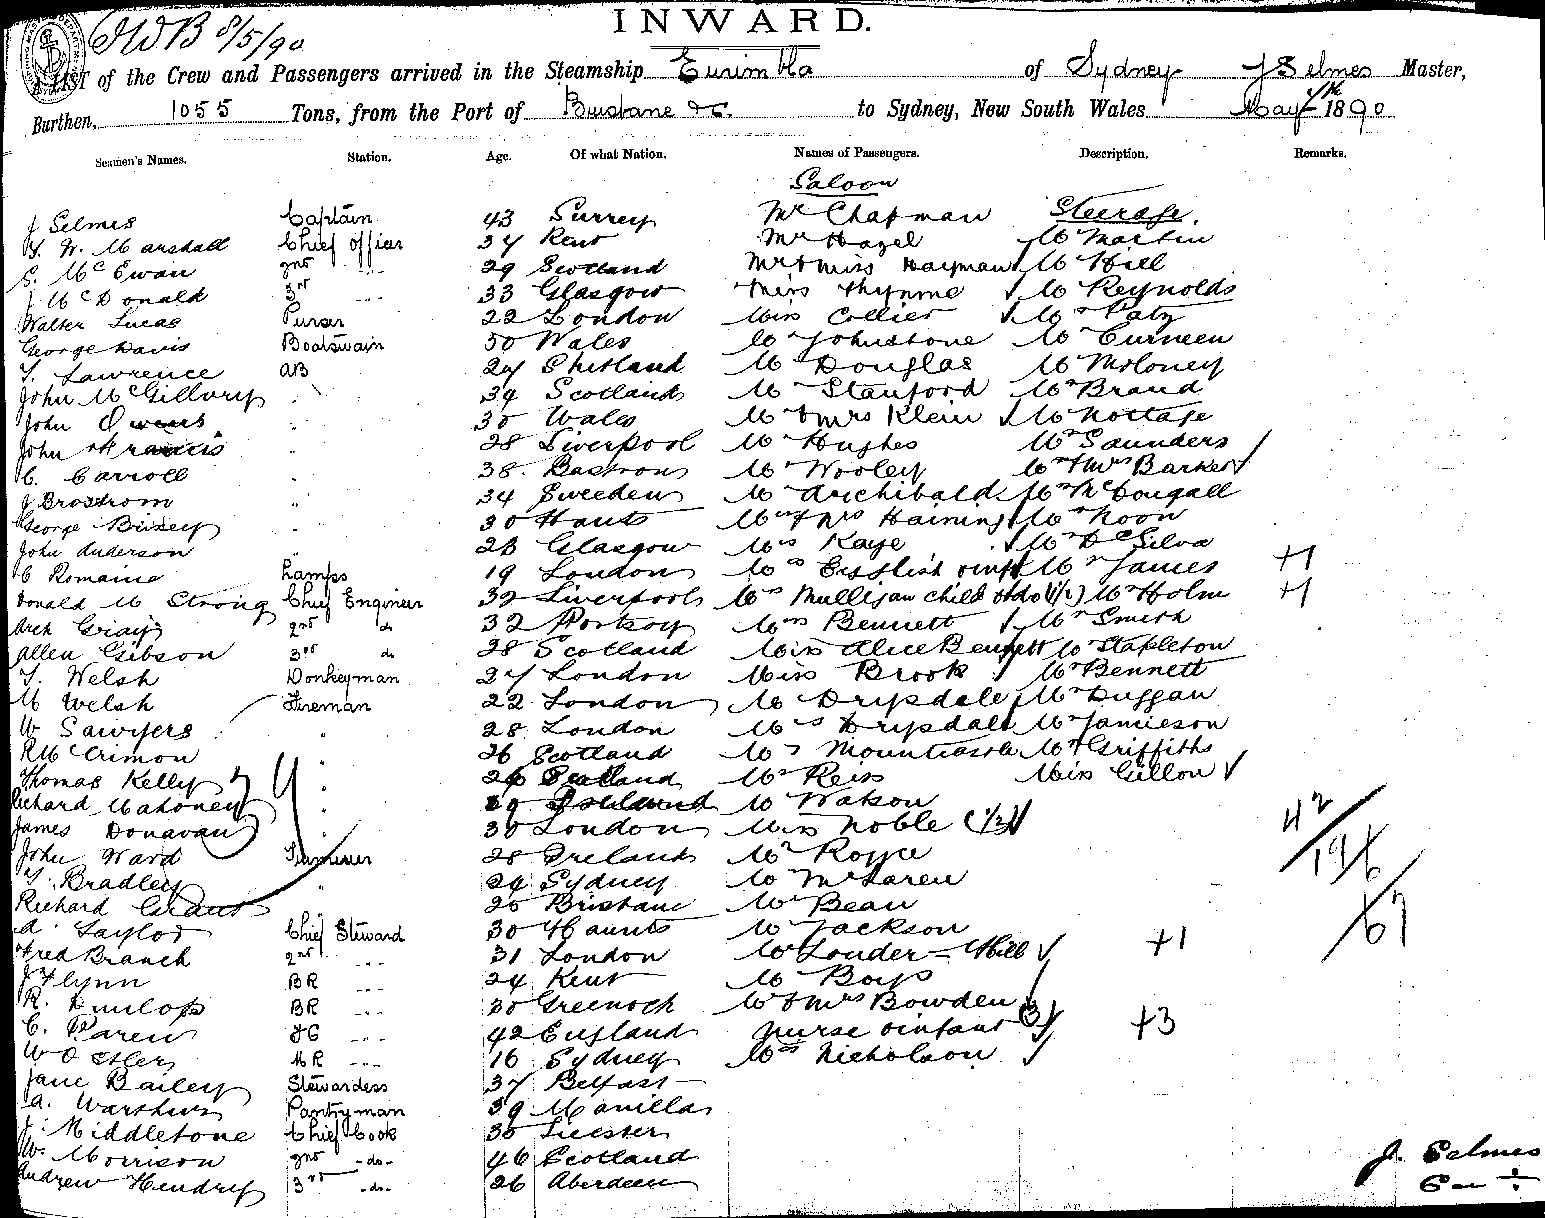 INWARD.
8/5/90
A LIST of the Crew and Passengers arrived in the Steamship Eurimbla of Sydney J Selmes Master,
Burthen, 1055 Tons, from the Port of Brisbane &c. to Sydney, New South Wales May 7th 1890
Seamen's Names. Station. Age. Of what Nation. Names of Passengers. Description. Remarks.
Saloon
J Selmes Captain 43 Surrey Mr Chapman Steerage.
W. Marshall Chief officer 34 Kent Mr Hazel Mr Martin
S. McEwan 2nd --- 29 Scotland Mr & Miss Hayman Mr Hill
J McDonald 3rd --- 33 Glasgow Miss Thynne Mr Reynolds
Walter Lucas Purser 22 London Miss Collier Mr Paty
George Davis Boatswain 50 Wales Mr Johnstone Mr Curneen
T. Lawrence AB 24 Shetland Mr Douglas Mr Moloney
John McGillvry " 34 Scotland Mr Stanford Mr Brand
John Owens " 30 Wales Mr & Mrs Klein Mr Nottage
John Francis " 28 Liverpool Mr Hughes Mr Saunders
C. Carroll " 38 Mr Wooley Mr & Mrs Barker
J Brostrom " 34 Sweeden Mr Archibald Mr McDougall
George Bussey " 30 Hants Mr & Mrs Haining Mr Noon
John Anderson " 28 Glasgow Mrs Kaye Mr De Silva
C Romaine Lamps 19 London Mrs English & inft Mr James +1
Donald M Strong Chief Engineer 32 Liverpool Mrs Mulligan child & do (1/2) Mr Holm +1
Arch Gray 2nd do 32 Portsoy Mrs Bennett Mr Smith
Allen Gibson 3rd do 28 Scotland Miss Alice Bennett Mr Stapleton
T. Welsh Donkeyman 34 London Miss Brook Mr Bennett
M Welsh Fireman 22 London Mr Drysdale Mr Duggan
W Sawyers " 28 London Mrs Drysdale Mr Jamieson
R McCrimon " 26 Scotland Mr Mountcastle Mr Griffiths
Thomas Kelly " 26 Scotland Mr Reis Miss Gillow
Richard Mahoney " Mr Watson
James Donavan " 30 London Miss Noble (1/2) 42
John Ward Trimmer 28 Ireland Mr Royce 19/6
T. Bradley " 24 Sydney Mr McLaren
Richard Grant " 20 Brisbane Mr Bean 67
A. Taylor Chief Steward 30 Haunts Mr Jackson
Fred Branch 2nd --- 31 London Mr Louder-Hill +1
J Flynn BR --- 24 Kent Mr Boys
R. Dunlop BR 30 Greenock Mr & Mrs Bowden
C. Paren --- 42 England nurse & infant (3) +3
W O Etler --- 16 Sydney Mrs Nicholson
Jane Bailey Stewardess 37 Belfast
A. Warthurs Pantryman 39 Manilla
J. Middletone Chief Cook 30 Liecster
W. Morrison 2nd -do- 46 Scotland
Andrew Hendry 3rd -do- 26 Aberdeen
J. Selmes